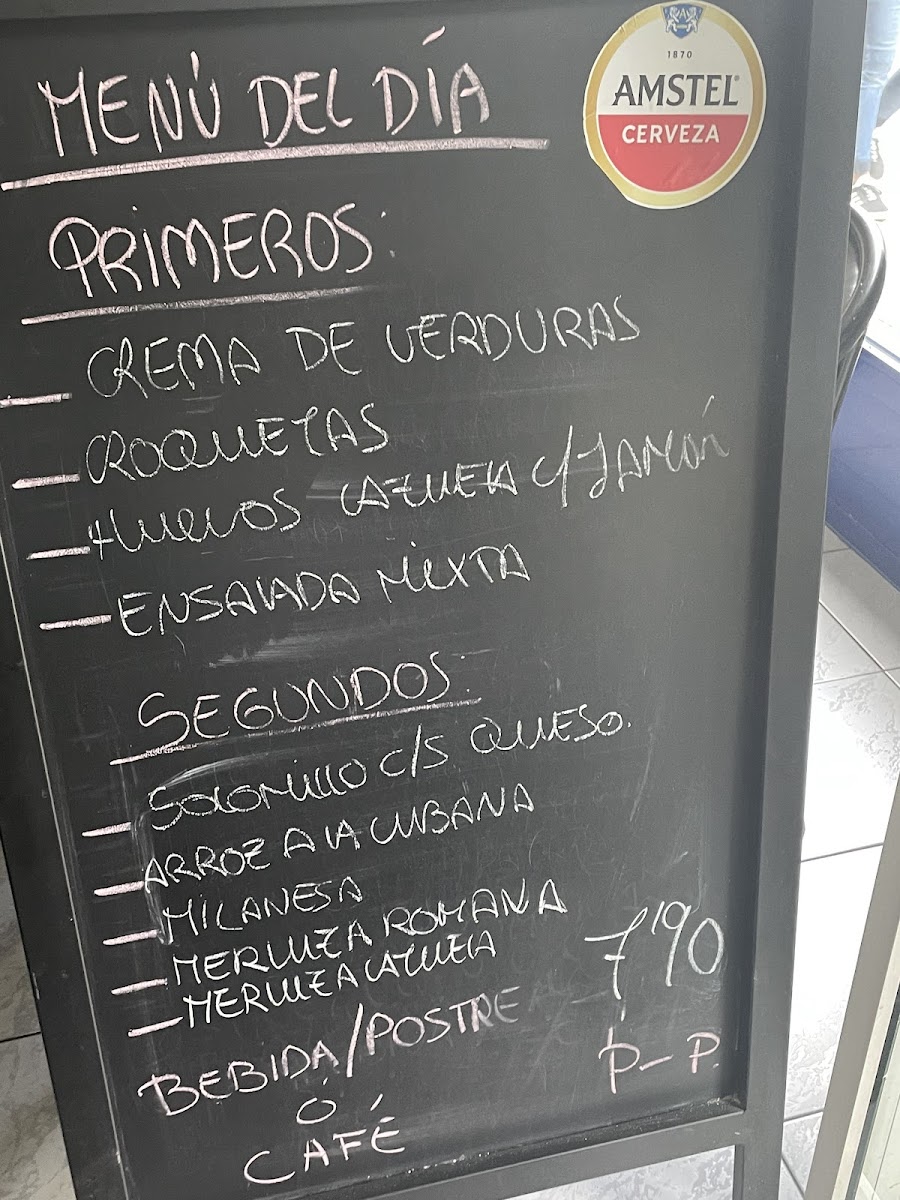 MENÚ DEL DÍA
1870
AMSTEL
CERVEZA
PRIMEROS:
CREMA DE VERDURAS
CROQUETAS
HUEVOS CAZUELA C/JAMÓN
ENSALADA MIXTA
SEGUNDOS:
SOLOMILLO C/S QUESO.
ARROZ A LA CUBANA
MILANESA
MERLUZA ROMANA
MERLUZA CAZUELA
7'90
BEBIDA/POSTRE
P-P.
Ó
CAFÉ